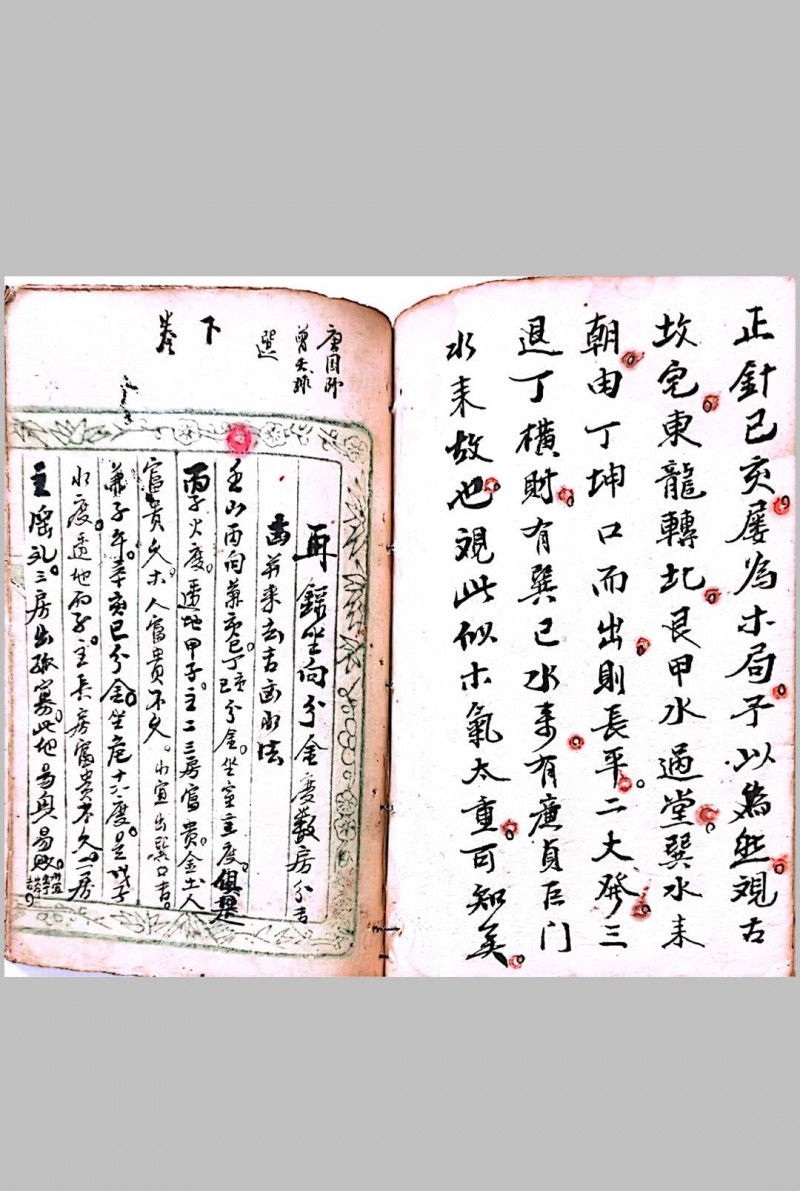 正針已亥屡為木局予以為然覌古
坟宅東龍轉北艮甲水過堂巽水来
朝由丁坤口而出則長平二大發三
退丁橫財有巽已水来有廉貞巨门
水来故也覌此似木氣太重可知矣
唐国師
曾文
選
下
卷
再錄坐向分金度数房分吉
凶并来去吉凶水法
壬山丙向兼亥巳丁亥丁巳分金坐室主度俱是
丙子火度透地甲子主二三房富贵金土人
富贵久木人富貴不久水宜出巽口吉
兼子午辛亥巳分金坐危十六度是戊子
水度透地丙子主長房富貴不久二房
主淫乱三房出孤寡此地易興易敗